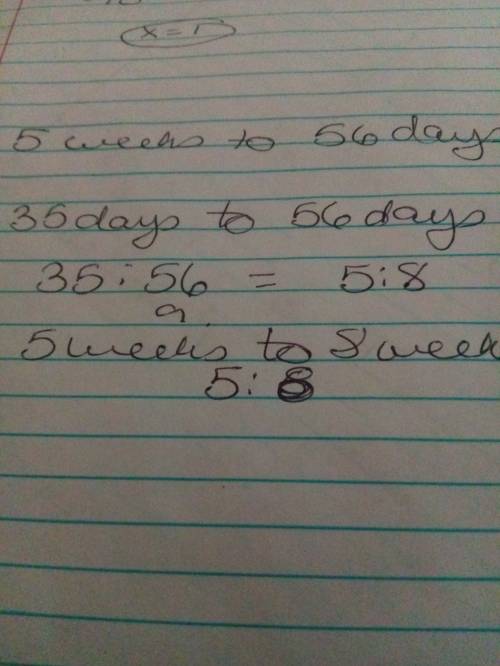 5 weeks to 56 days
35 days to 56 days
35:56 = 5:8
5 weeks to 8 week
5:8